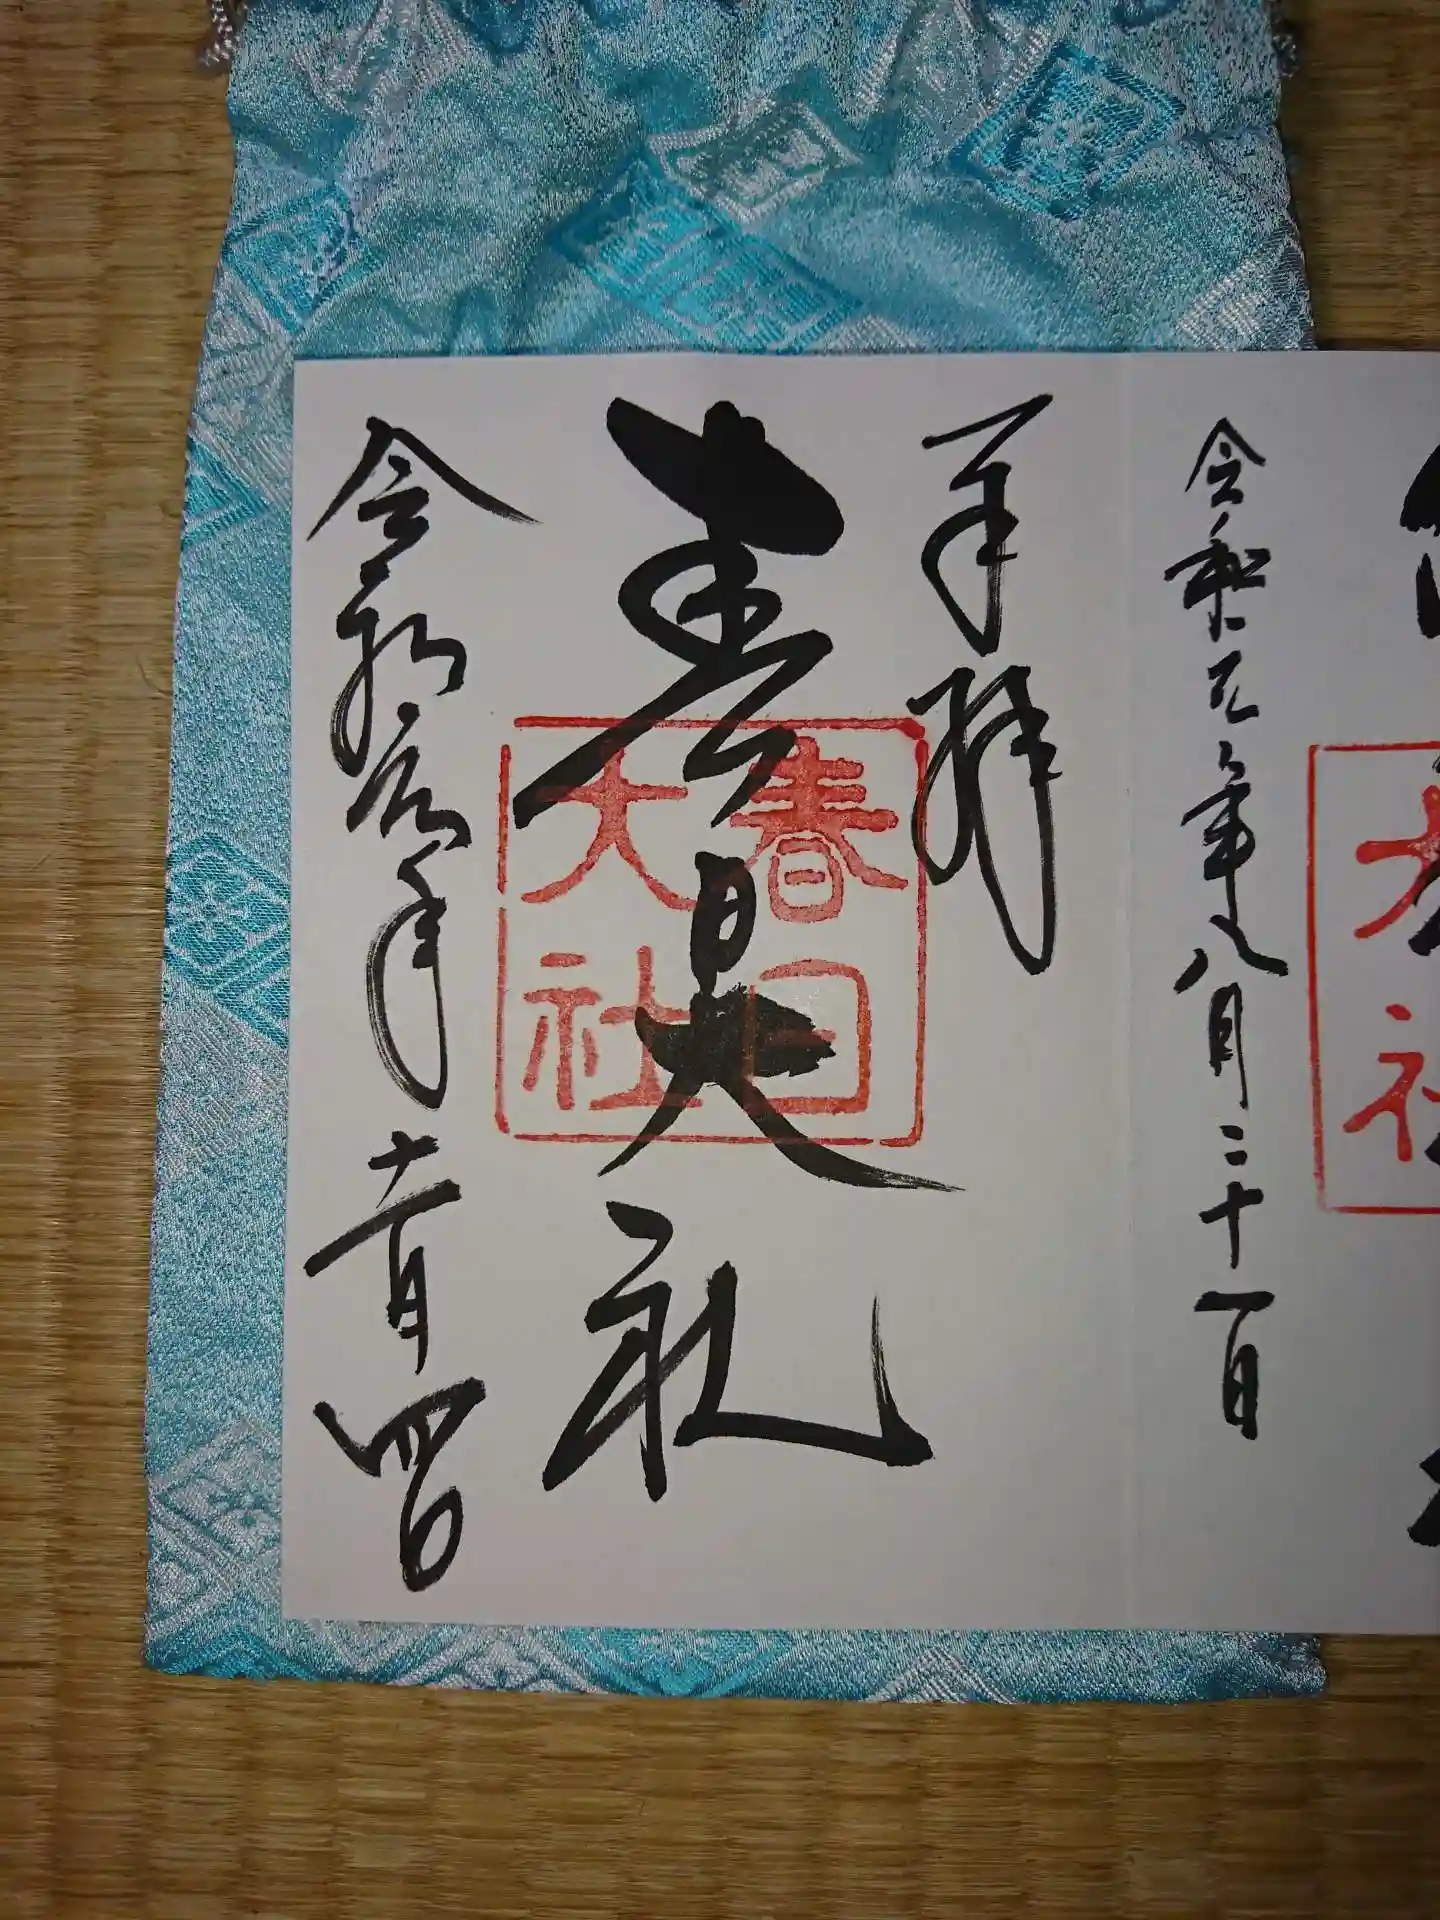 大社
令和元年八月二十一日
奉拝
春日大社
春日
大社
令和元年十一月四日